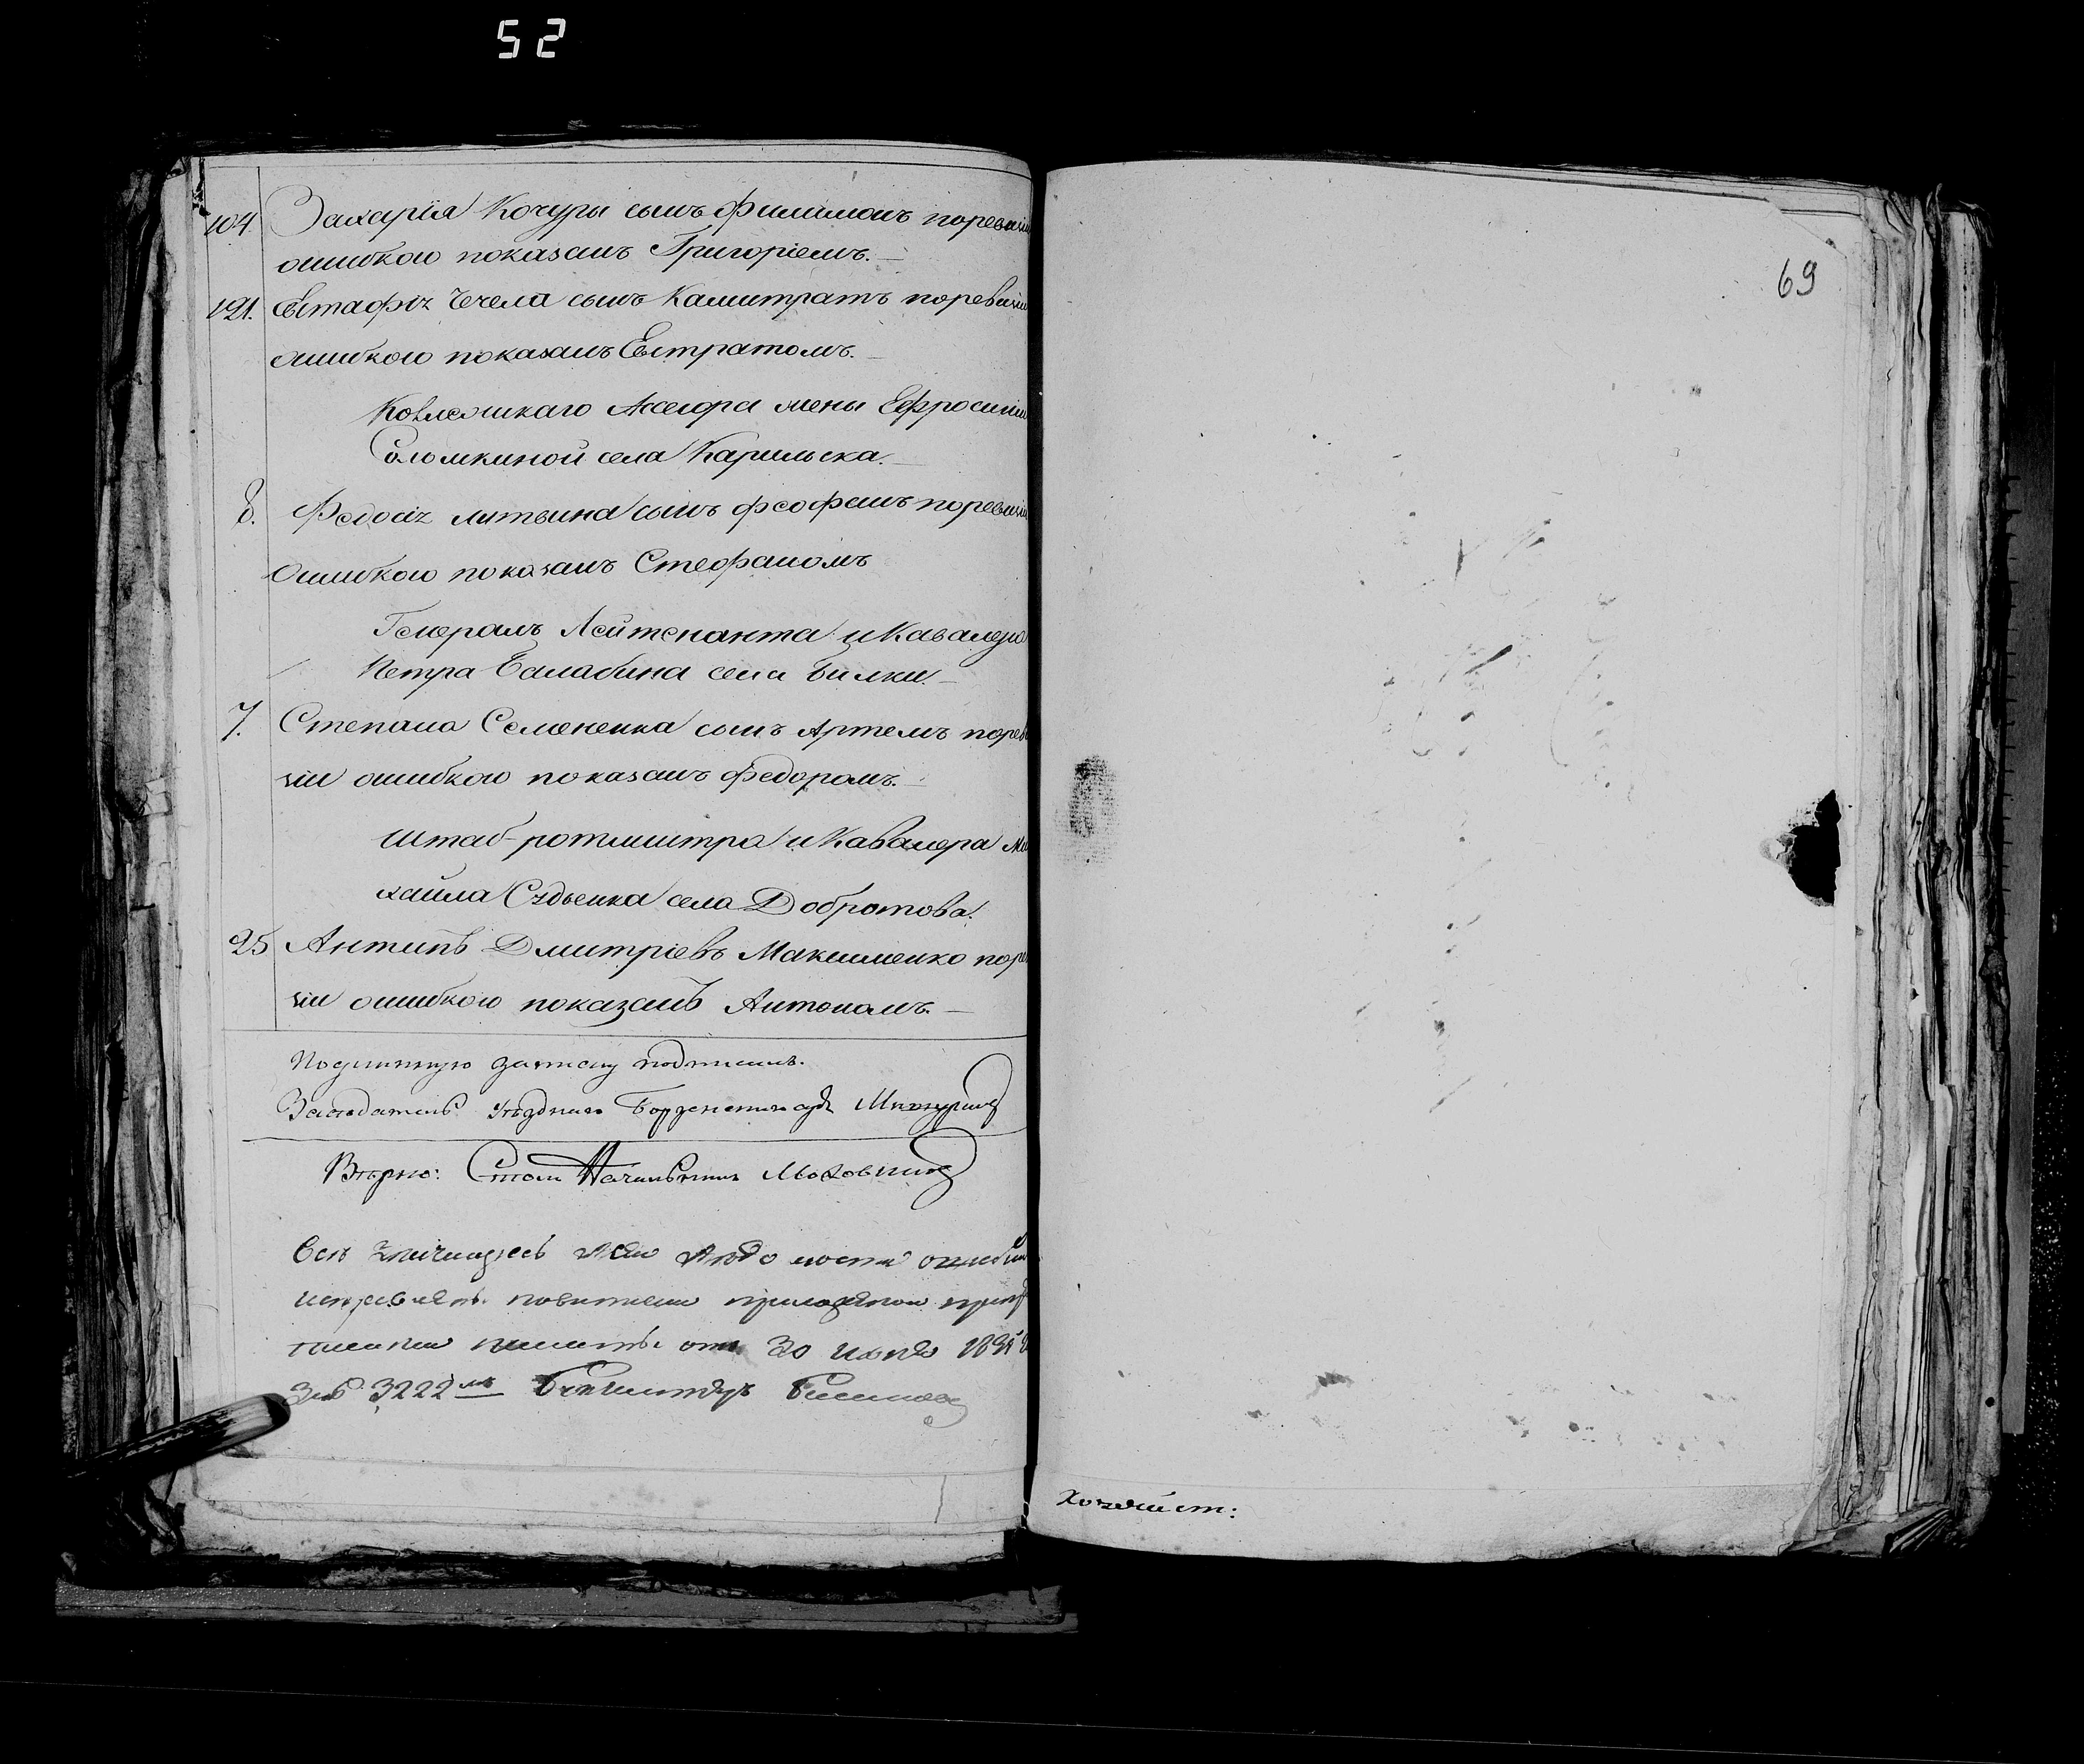 52
104. Захарія Кочуры сынъ Филимонъ поревизіи
ошибкою показанъ Григоріемъ.
121. Евстафія Чечела сынъ Калистратъ поревизіи
ошибкою показанъ Евстратомъ.
Колежскаго Ассесора жены Ефросиніи
Соломкиной села Карильска.
8. Федосія Литвина сынъ Феофанъ поревизіи
Ошибкою показанъ Стефаномъ
Генералъ Лейтенанта и Кавалера
Петра Балабина села Билки.
7. Степана Семененка сынъ Артемъ пореви
зіи ошибкою показанъ Федоромъ.
Штаб-ротмистра и Кавалера Ми
хайла Судьенка села Добротова.
25 Антипъ Дмитріевъ Максименко пореви
зіи ошибкою показанъ Антономъ.
Подлинную записку подписалъ.
Засѣдатель уѣзднаго
Вѣрно: Столоначальникъ
отъ 30 Июня
3222
69
Хозяйст: